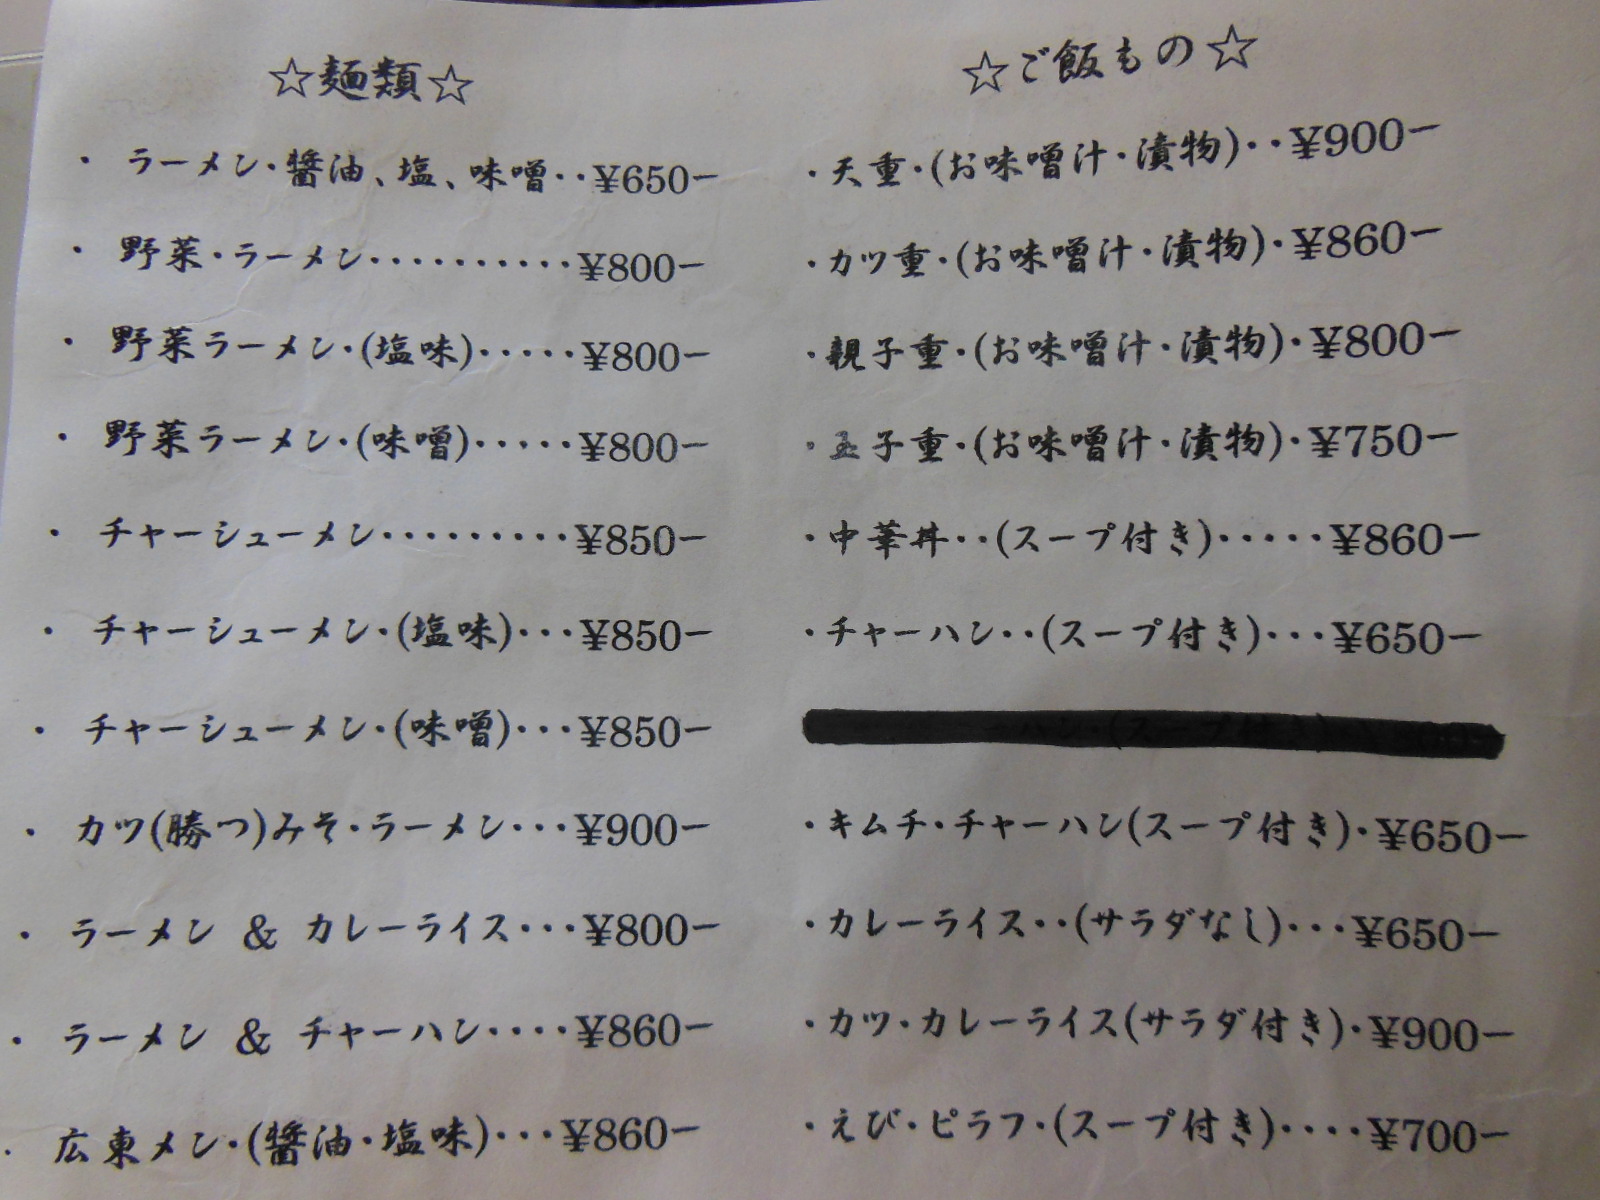 ☆麺類☆
・ ラーメン・醬油、塩、味噌・・¥650ー
・ 野菜・ラーメン・・・・・・・・・・¥800ー
・ 野菜ラーメン・(塩味)・・・・・¥800ー
・ 野菜ラーメン・(味噌)・・・・・¥800ー
・ チャーシューメン・・・・・・・・・¥850ー
・ チャーシューメン・(塩味)・・・¥850ー
・ チャーシューメン・(味噌)・・・¥850ー
・ カツ(勝つ)みそ・ラーメン・・・¥900ー
・ ラーメン & カレーライス・・・¥800ー
・ ラーメン & チャーハン・・・・¥860ー
・ 広東メン・(醬油・塩味)・・・¥860ー
☆ご飯もの☆
・天重・(お味噌汁・漬物)・・¥900ー
・カツ重・(お味噌汁・漬物)・¥860ー
・親子重・(お味噌汁・漬物)・¥800ー
・玉子重・(お味噌汁・漬物)・¥750ー
・中華丼・・(スープ付き)・・・・・¥860ー
・チャーハン・・(スープ付き)・・・¥650ー
ハン・(スープ付き)
・キムチ・チャーハン(スープ付き)・¥650ー
・カレーライス・・(サラダなし)・・・¥650ー
・カツ・カレーライス(サラダ付き)・¥900ー
・えび・ピラフ・(スープ付き)・・・・¥700ー